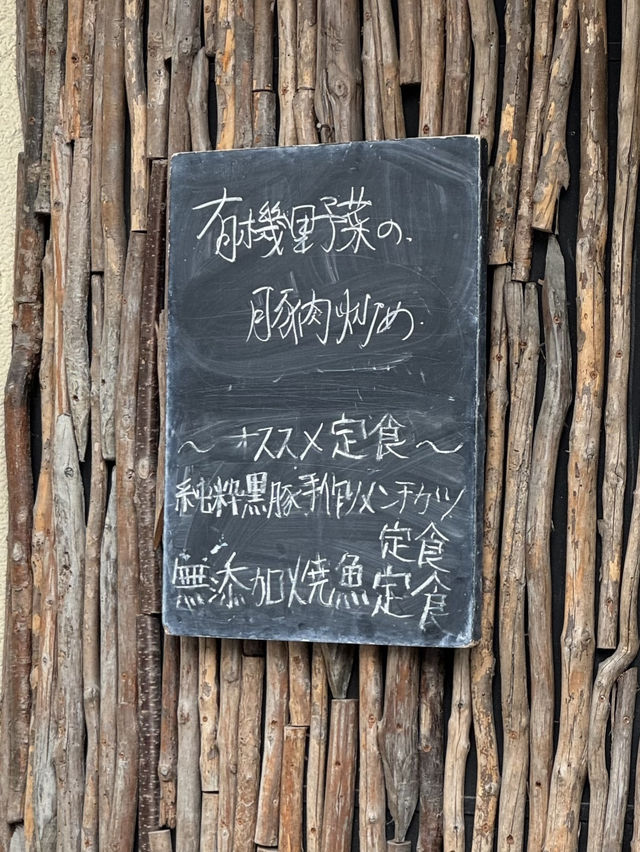 有機野菜の
豚肉炒め
〜オススメ定食〜
純粋黒豚手作りメンチカツ
定食
無添加焼魚定食